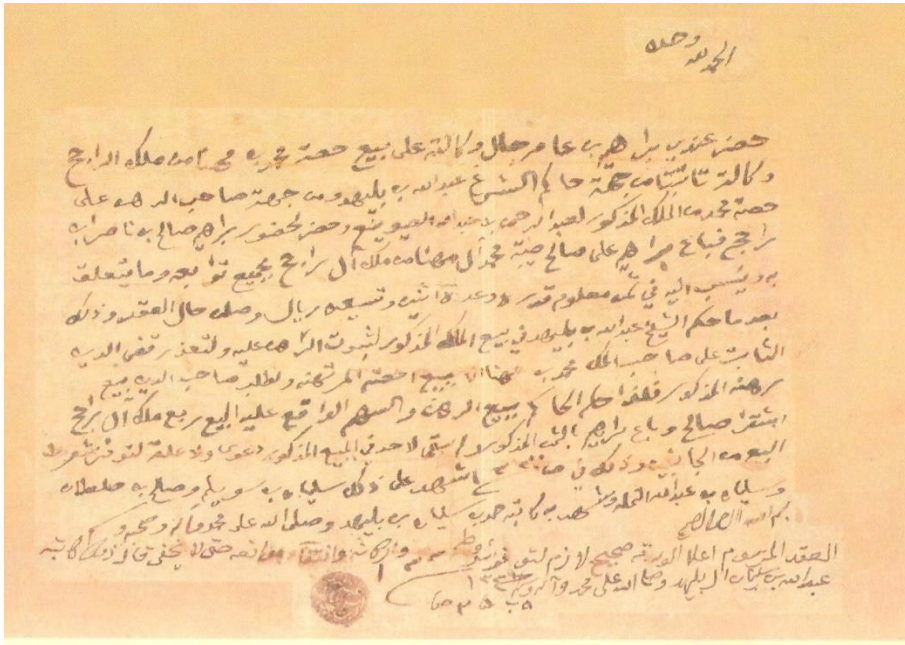 الحمد لله وحده
حضر عندي براهيم بن عامر حال وكالته على بيع حصة محمد بن مهنا من ملك الراجح
وكالة ثابتة من جهة حاكم الشرع عبدالله بن بليهد ومن جهة صاحب الرهن على
حصة محمد من الملك المذكور لعبد الرحمن وحضر لحضور براهيم صالح بن ناصر ابن
راجح فباع براهيم على صالح حصة محمد آل مهنا من ملك آل راجح بجميع توابعه وما يتعلق
به وينسب اليه في ثمن معلوم قدره وعدده اثنين وتسعين ريال وصلن حال العقد وذلك
بعد ما حكم الشيخ عبدالله بن بليهد في بيع الملك المذكور لثبوت الرهن عليه ولتعذر قضى الدين
الثابت على صاحب الملك محمد بن مهنا ولطلب صاحب الدين بيع
رهنه المذكور فلهذا حكم الحاكم ببيع الرهن والسهم الواقع عليه البيع ربع ملك آل راجح
اشترا صالح وباع براهيم بالثمن المذكور ولم يبقى لاحد في المبيع المذكور دعوى ولا علقة لتوفر شروط
البيع من الجانبين وذلك في شهد على ذلك سليمان بن سويلم وصالح بن سلطان
وسليمان بن عبدالله وشهد به كاتبه حمد بن سليمان بن بليهد وصلى الله على محمد واله وصحبه وسلم
بسم الله الرحمن الرحيم
العقد المرسوم اعلا الورقة صحيح لازم لتوفر شروطه واركانه وانتفاء موانعه حتى لا يخفى قال ذلك كاتبه
عبدالله بن سليمان آل بليهد وصلى الله على محمد وآله وسلم